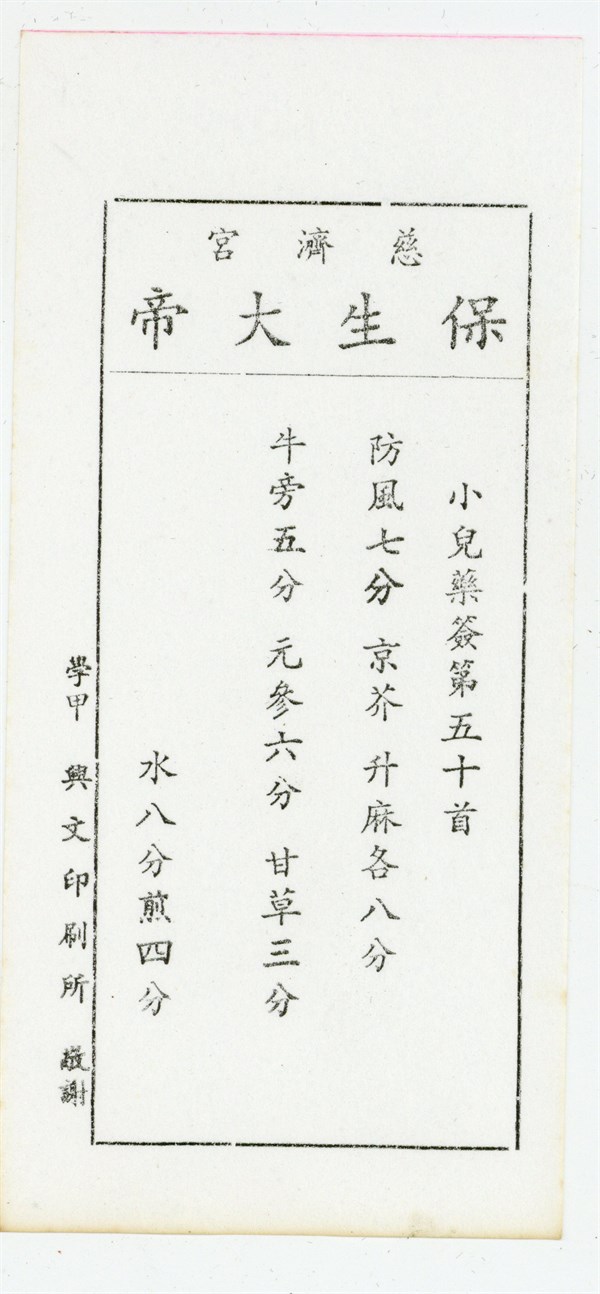 慈濟宮
保生大帝
小兒藥簽第五十首
防風七分 京芥 升麻各八分
牛旁五分 元參六分 甘草三分
水八分煎四分
學甲 興文印刷所 敬謝